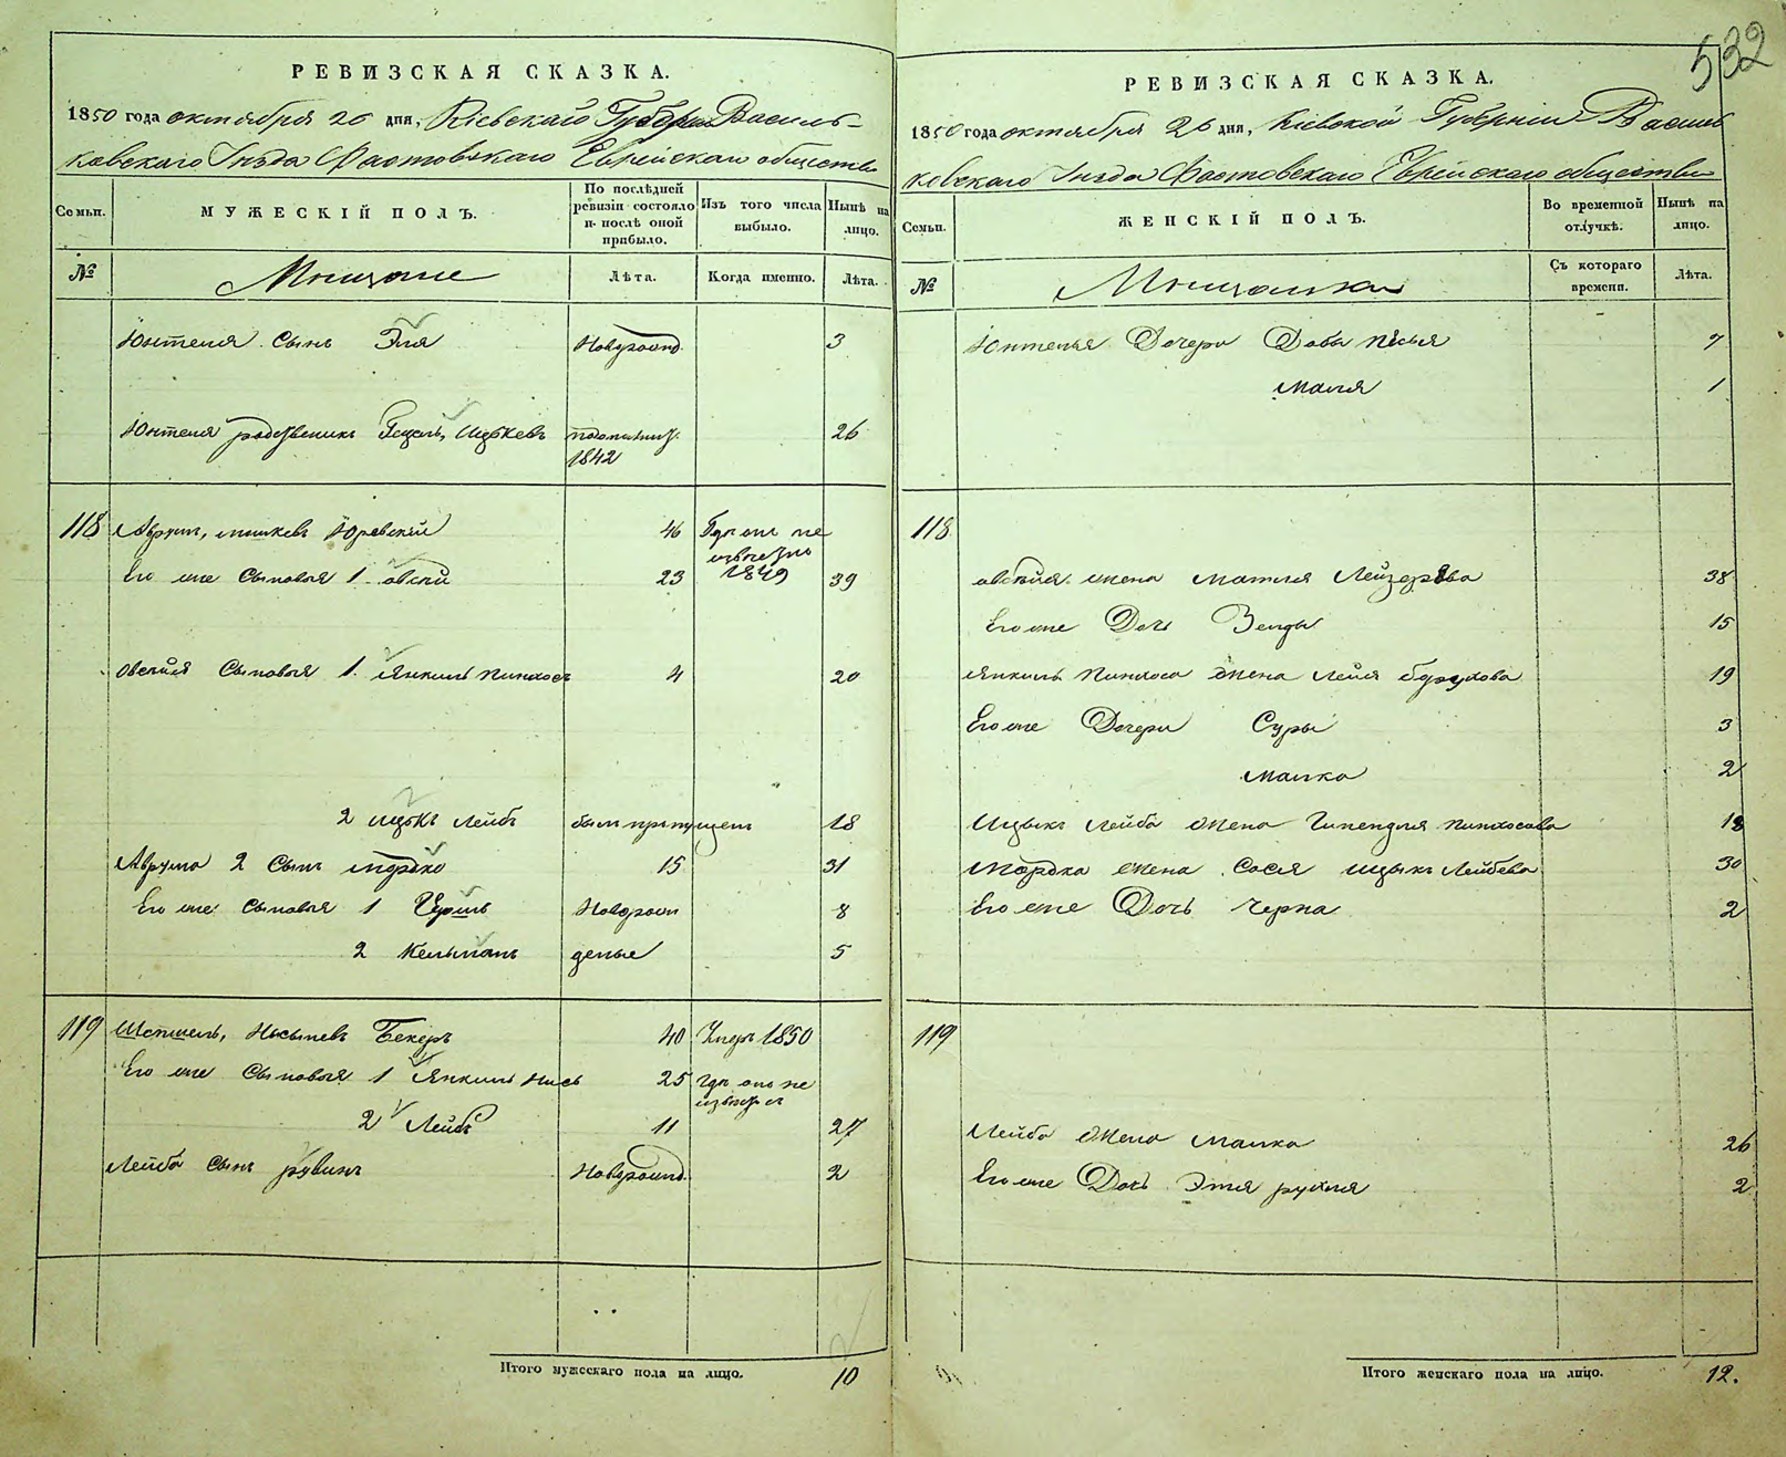 532
РЕВИЗСКАЯ СКАЗКА.
1850 года октября 26 дня, Кіевскаго Губерніи Василь-
ковскаго Уѣзда Фастовскаго Еврейскаго общества
Семьи.
МУЖЕСКІЙ ПОЛЪ.
По послѣдней ревизіи состояло и послѣ оной прибыло.
Изъ того числа выбыло.
Нынѣ на лицо.
№
Мещане
Лѣта.
Когда именно.
Лѣта.
Юнтеля Сынъ Эля 3
Юнтеля Гецель, Ицкевъ 26
1842
118 Аврумъ, Мошкевъ Юревскій 46 Гдѣ онъ не
1849
Его же Сыновья 1 Овсѣй 23 39
Овсѣя Сыновья 1. Янкель Пинхосъ 4 20
2 Ицъкъ Лейбъ былъ пропущенъ 18
Аврума 2 Сынъ Мордко 15 31
Его же Сыновья 1 8
2 Кельманъ 5
119 Шепшель, Бекеръ 40 Умеръ 1850
Его же Сыновья 1 Янкель 25 гдѣ онъ не
2 Лейбъ 11 27
Лейба Сынъ Рувинъ 2
Итого мужескаго пола на лицо. 10
РЕВИЗСКАЯ СКАЗКА.
1850 года октября 26 дня, Кіевской Губерніи Василь
ковскаго Уѣзда Фастовскаго Еврейскаго общества
Семьи.
ЖЕНСКІЙ ПОЛЪ.
Во временной отлучкѣ.
Нынѣ на лицо.
№
Мещанки
Съ котораго времени.
Лѣта.
Юнтеля Дочери Добы Песья 7
Маля 1
118
Овсѣя жена Матля Лейзерова 38
Его же Дочь Зелды 15
Янкель Пинхоса жена Лейя Борухова 19
Его же Дочери Суры 3
Малка 2
Ицыкъ Лейба жена Пинхосова 18
Мордка жена Сося Ицыкъ Лейбева 30
Его же Дочь Черна 2
119
Лейба жена Малка 26
Его же Дочь Этя Рухля 2
Итого женскаго пола на лицо. 12.